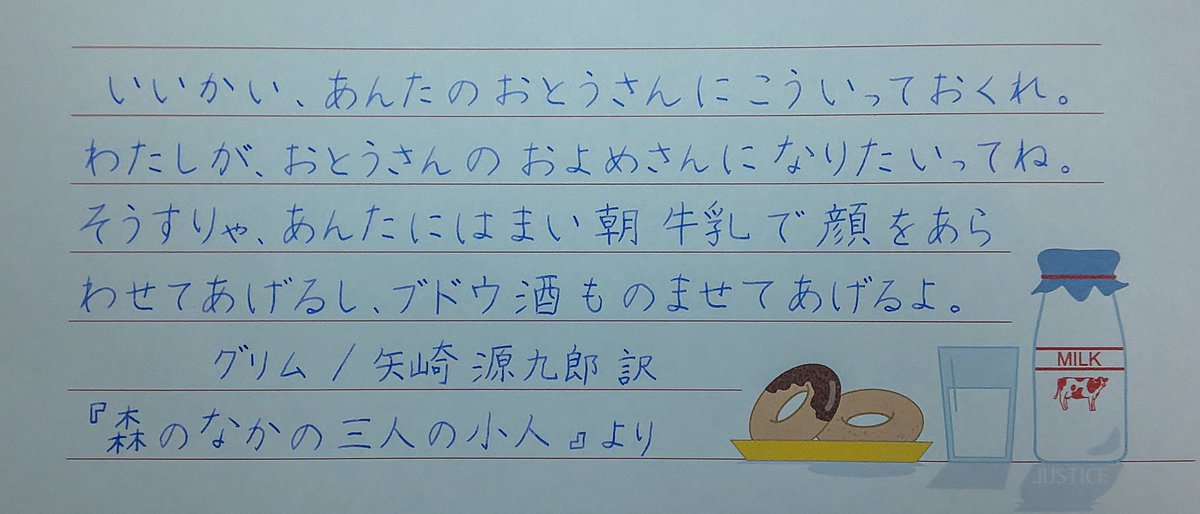 いいかい、あんたのおとうさんにこういっておくれ。
わたしが、おとうさんのおよめさんになりたいってね。
そうすりゃ、あんたにはまい朝牛乳で顔をあら
わせてあげるし、ブドウ酒ものませてあげるよ。
グリム/矢崎源九郎訳
『森のなかの三人の小人』より
MILK
JUSTICE